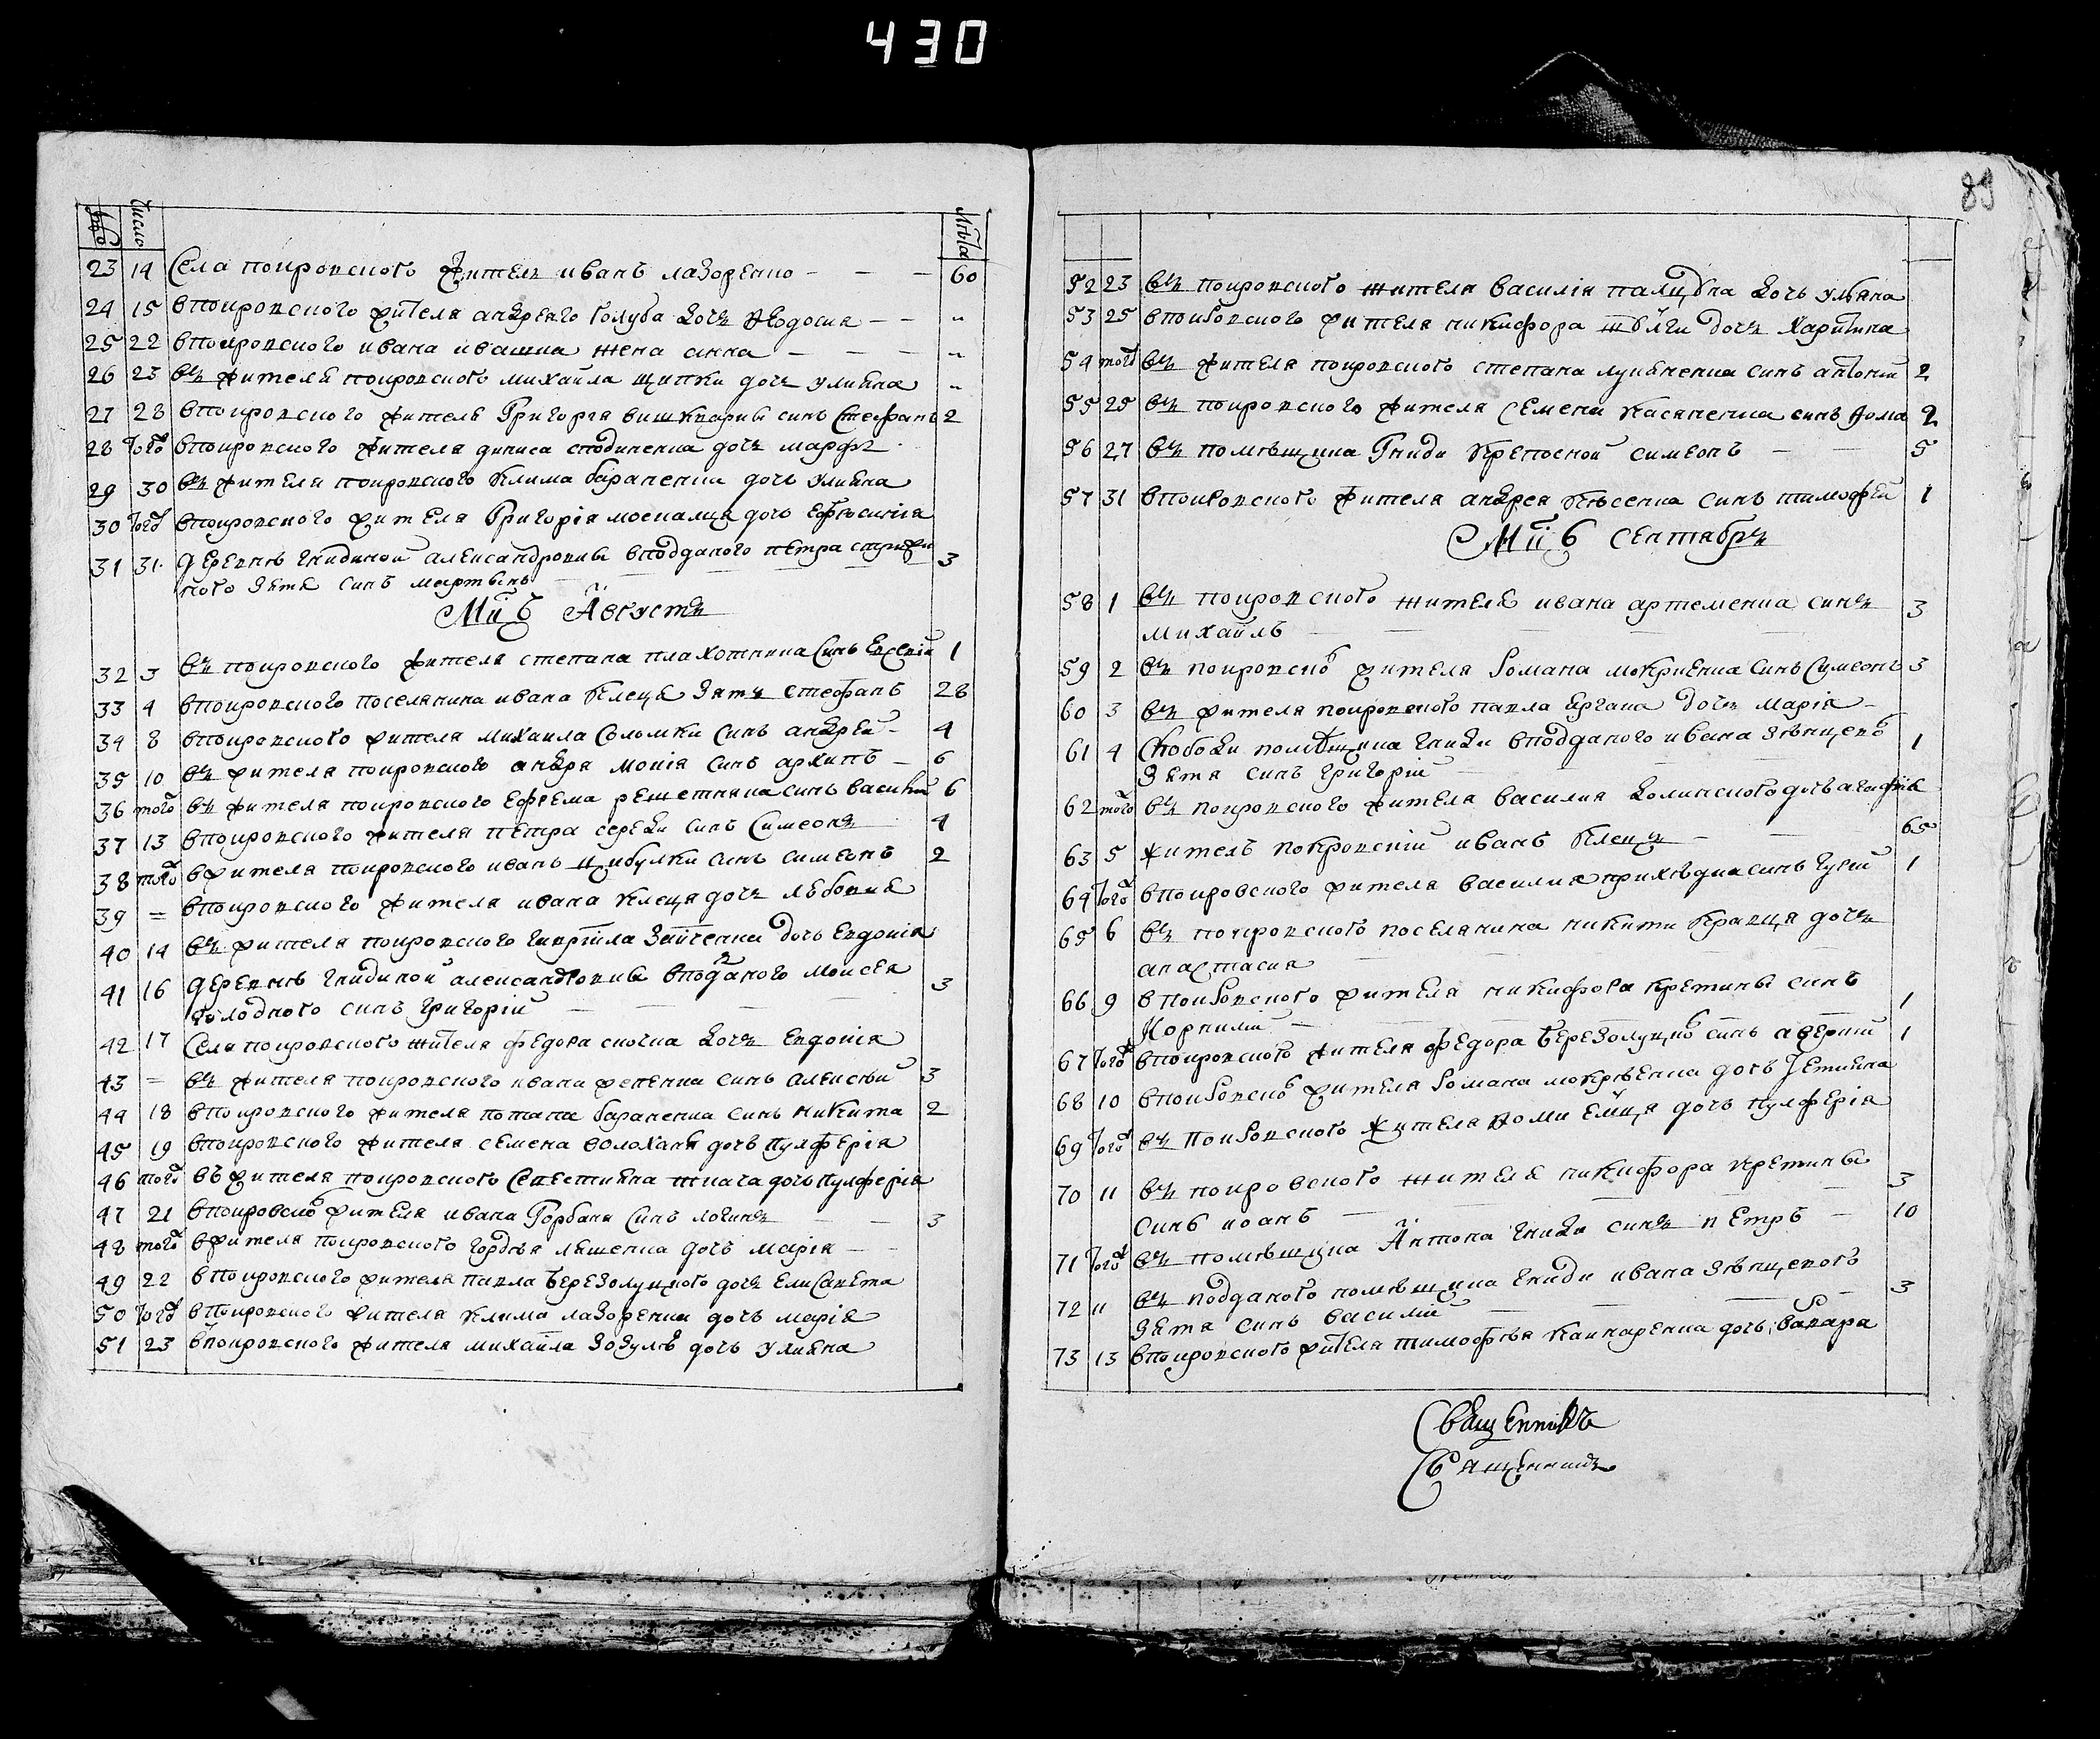 430
89
Число
Лѣта
23 14 Села покровского житель иванъ лазоренко — — — 60
24 15 в покровского жителя андрея голуба дочъ Ѳеодосия — — „
25 22 в покровского ивана ивашка жена анна — — — „
26 23 въ жителя покровского михаила щипки дочъ улияна „
27 28 в покровского жителя Григория синъ Стефанъ 2
28 того в покровского жителя дениса дочъ марфа
29 30 въ жителя покровского клима бараненка дочъ улияна
30 того в покровского жителя Григорія москалца дочъ Ефросинія
31 31 деревнѣ гнидиной александровки в подданого петра 3
ного зятя синъ мартинъ
Мцъ Августъ
32 3 въ покровского жителя степана плахотника Синъ Евсевій 1
33 4 в покровского поселянина ивана клеця зять стефанъ 28
34 8 в покровского жителя михаила Соломки Синъ андрей 4
35 10 въ жителя покровского андрея синъ архипъ — 6
36 того въ жителя покровского ефрема решетняка синъ василий 6
37 13 в покровского жителя петра середи синъ Симеонъ 4
38 того в жителя покровского иванъ цибулки синъ симеонъ 2
39 = в покровского жителя ивана клеця дочъ любовия
40 14 въ жителя покровского гавриила зайченка дочъ Евдокия
41 16 деревнѣ гнидиной александровки в подданого моисея 3
голодного синъ григорій
42 17 Села покровского жителя федора скочка дочъ Евдокія
43 = въ жителя покровского ивана репенка синъ алексѣй 3
44 18 в покровского жителя потапа бараненка синъ никита 2
45 19 в покровского жителя семена волохана дочъ пулферія
46 того въ жителя покровского Севестияна ткача дочъ пулферія
47 21 в покровско жителя ивана Горбаня Синъ логинъ — — 3
48 того в жителя покровского гордѣя ляшенка дочъ марія —
49 22 в покровского жителя павла березолуцкого дочъ Елисавета
50 того в покровского жителя клима лазоренка дочъ марія
51 23 в покровского жителя михаила зозулѣ дочъ улияна
52 23 въ покровского жителя василія палцуна дочъ уляна
53 25 в покровского жителя никифора дочъ Харитина
54 того въ жителя покровского степана лукяненка синъ антоній 2
55 25 въ покровского жителя Семена касяненка синъ Ѳома 2
56 27 въ помѣщика Гниди крепосной симеонъ — — 5
57 31 в покровского жителя андрея синъ тимофей 1
Мцъ Сентябръ
58 1 въ покровского жителя ивана артеменка синъ 3
михаилъ
59 2 въ покровско жителя Романа мокриенка синъ Симеонъ 3
60 3 въ жителя покровского павла ергана дочъ марія —
61 4 Слободи помѣщика гниди в подданого ивана зѣнцево 1
зятя синъ григорій
62 того въ покровского жителя василия долинского дочъ агафия
63 5 житель покровскій иванъ клецъ — — 65
64 того в покровского жителя василия приходка синъ гурій 1
65 6 въ покровского поселянина никити кравця дочъ
анастасия
66 9 в покровского жителя никифора кретини синъ 1
Корнилий
67 того в покровского жителя федора березолуцко синъ аверкий 1
68 10 в покровско жителя Романа мокрѣенка дочъ Устинна
69 того въ покровского жителя Ѳоми Емця дочъ пулферія
70 11 въ покровского жителя никифора кретини 3
синъ иоанъ —
71 того въ помѣщика Антона гниди синъ петръ — 10
72 11 въ подданого помѣщика гниди ивана зѣнцевого 3
зятя синъ василий
73 13 в покровского жителя тимофѣя кашкаренка дочъ вавара
Священникъ
Священникъ